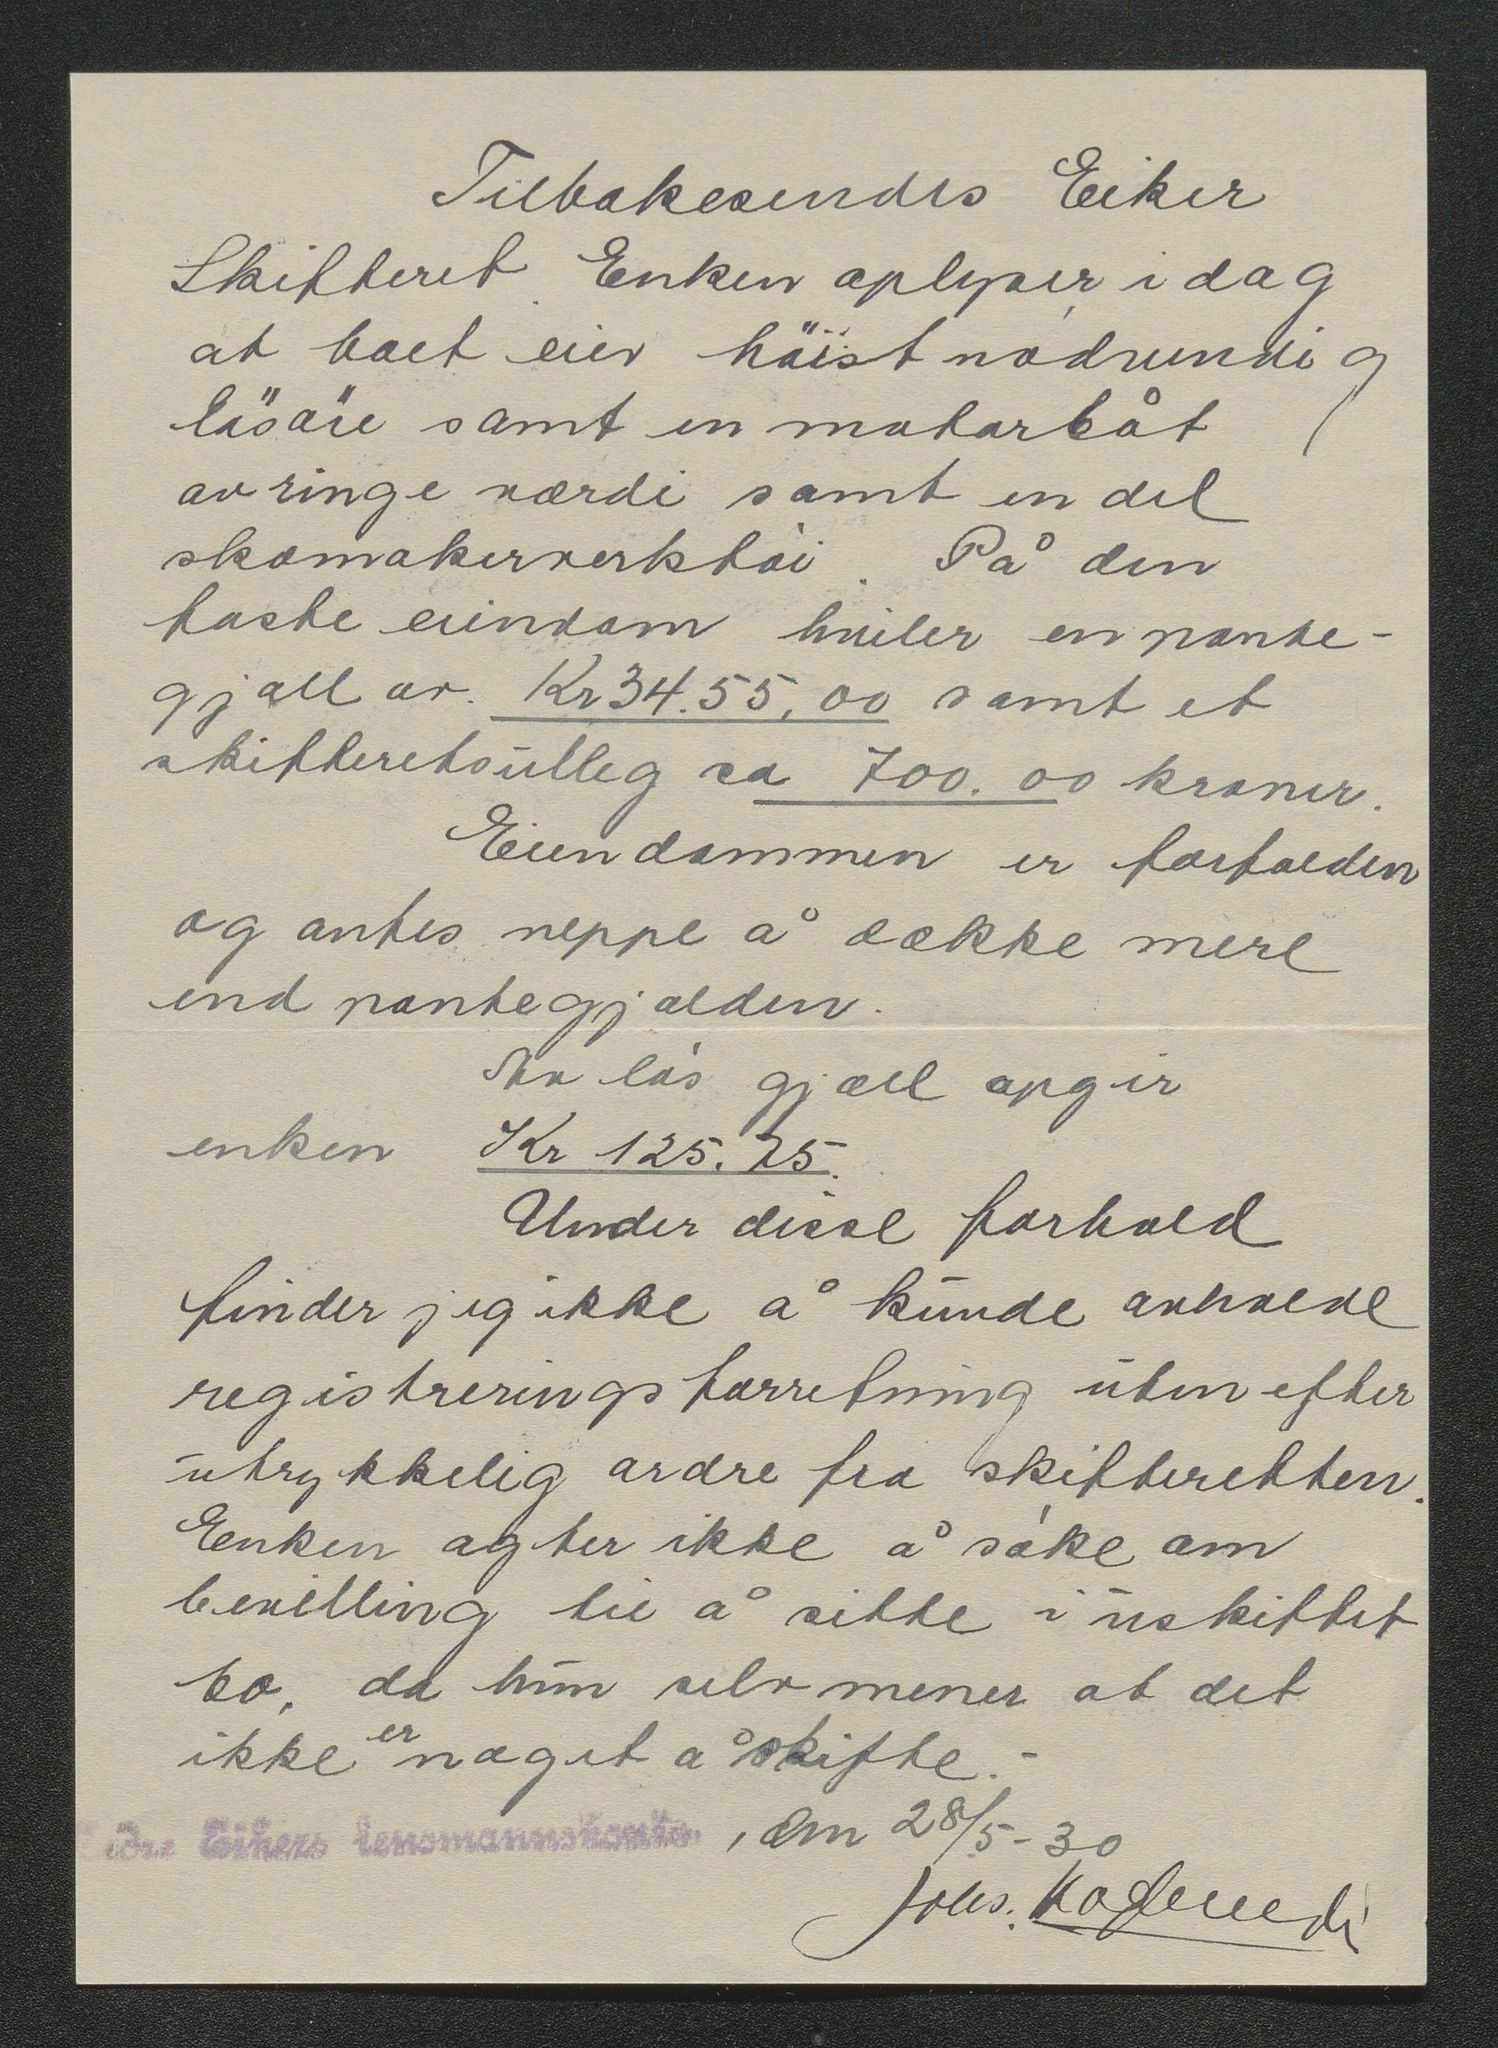 Tilbakesendes Eiker
Skifteret. Enken oplyser i dag
at boet eier höist nødvendig
løsøie samt en motorbåt
av ringe værdi samt en del
skomakerverktöi. På den
faste eiendom hviler en pante-
gjæll av. Kr 34.55,00 samt et
skifteretsutleg ca 700.00 kroner.
Eiendommen er forfalden
og antes neppe å dække mere
end pantegjælden.
Av løs gjæll opgir
enken Kr 125.75.
Under disse forhold
finder jeg ikke å kunde avholde
registreringsforretning uten efter
utrykkelig ordre fra skifteretten.
Enken agter ikke å søke om
bevilling til å sitte i uskiftet
bo, da hun selv mener at det
ikke er noget å skifte.-
Øvre Eikers lensmannskontor, den 28/5-30
Johs.